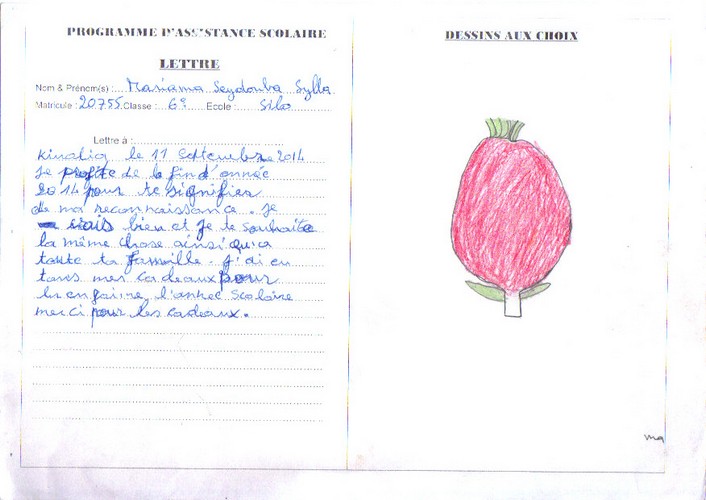 PROGRAMME D'ASSISTANCE SCOLAIRE
LETTRE
Nom & Prénom(s) : Mariama Seydouba Sylla
Matricule : 20755 Classe : 6e Ecole : Silo
Lettre à :
le 11 Septembre 2014
Je profite de la fin d'année
2014 pour te signifier
de ma reconnaissance. Je
siais bien et je te souhaite
la même chose ainsi qu'a
toute ta famille. J'ai eu
tous mes cadeaux pour
bien faire l'année scolaire
merci pour les cadeaux.
DESSINS AUX CHOIX
ma